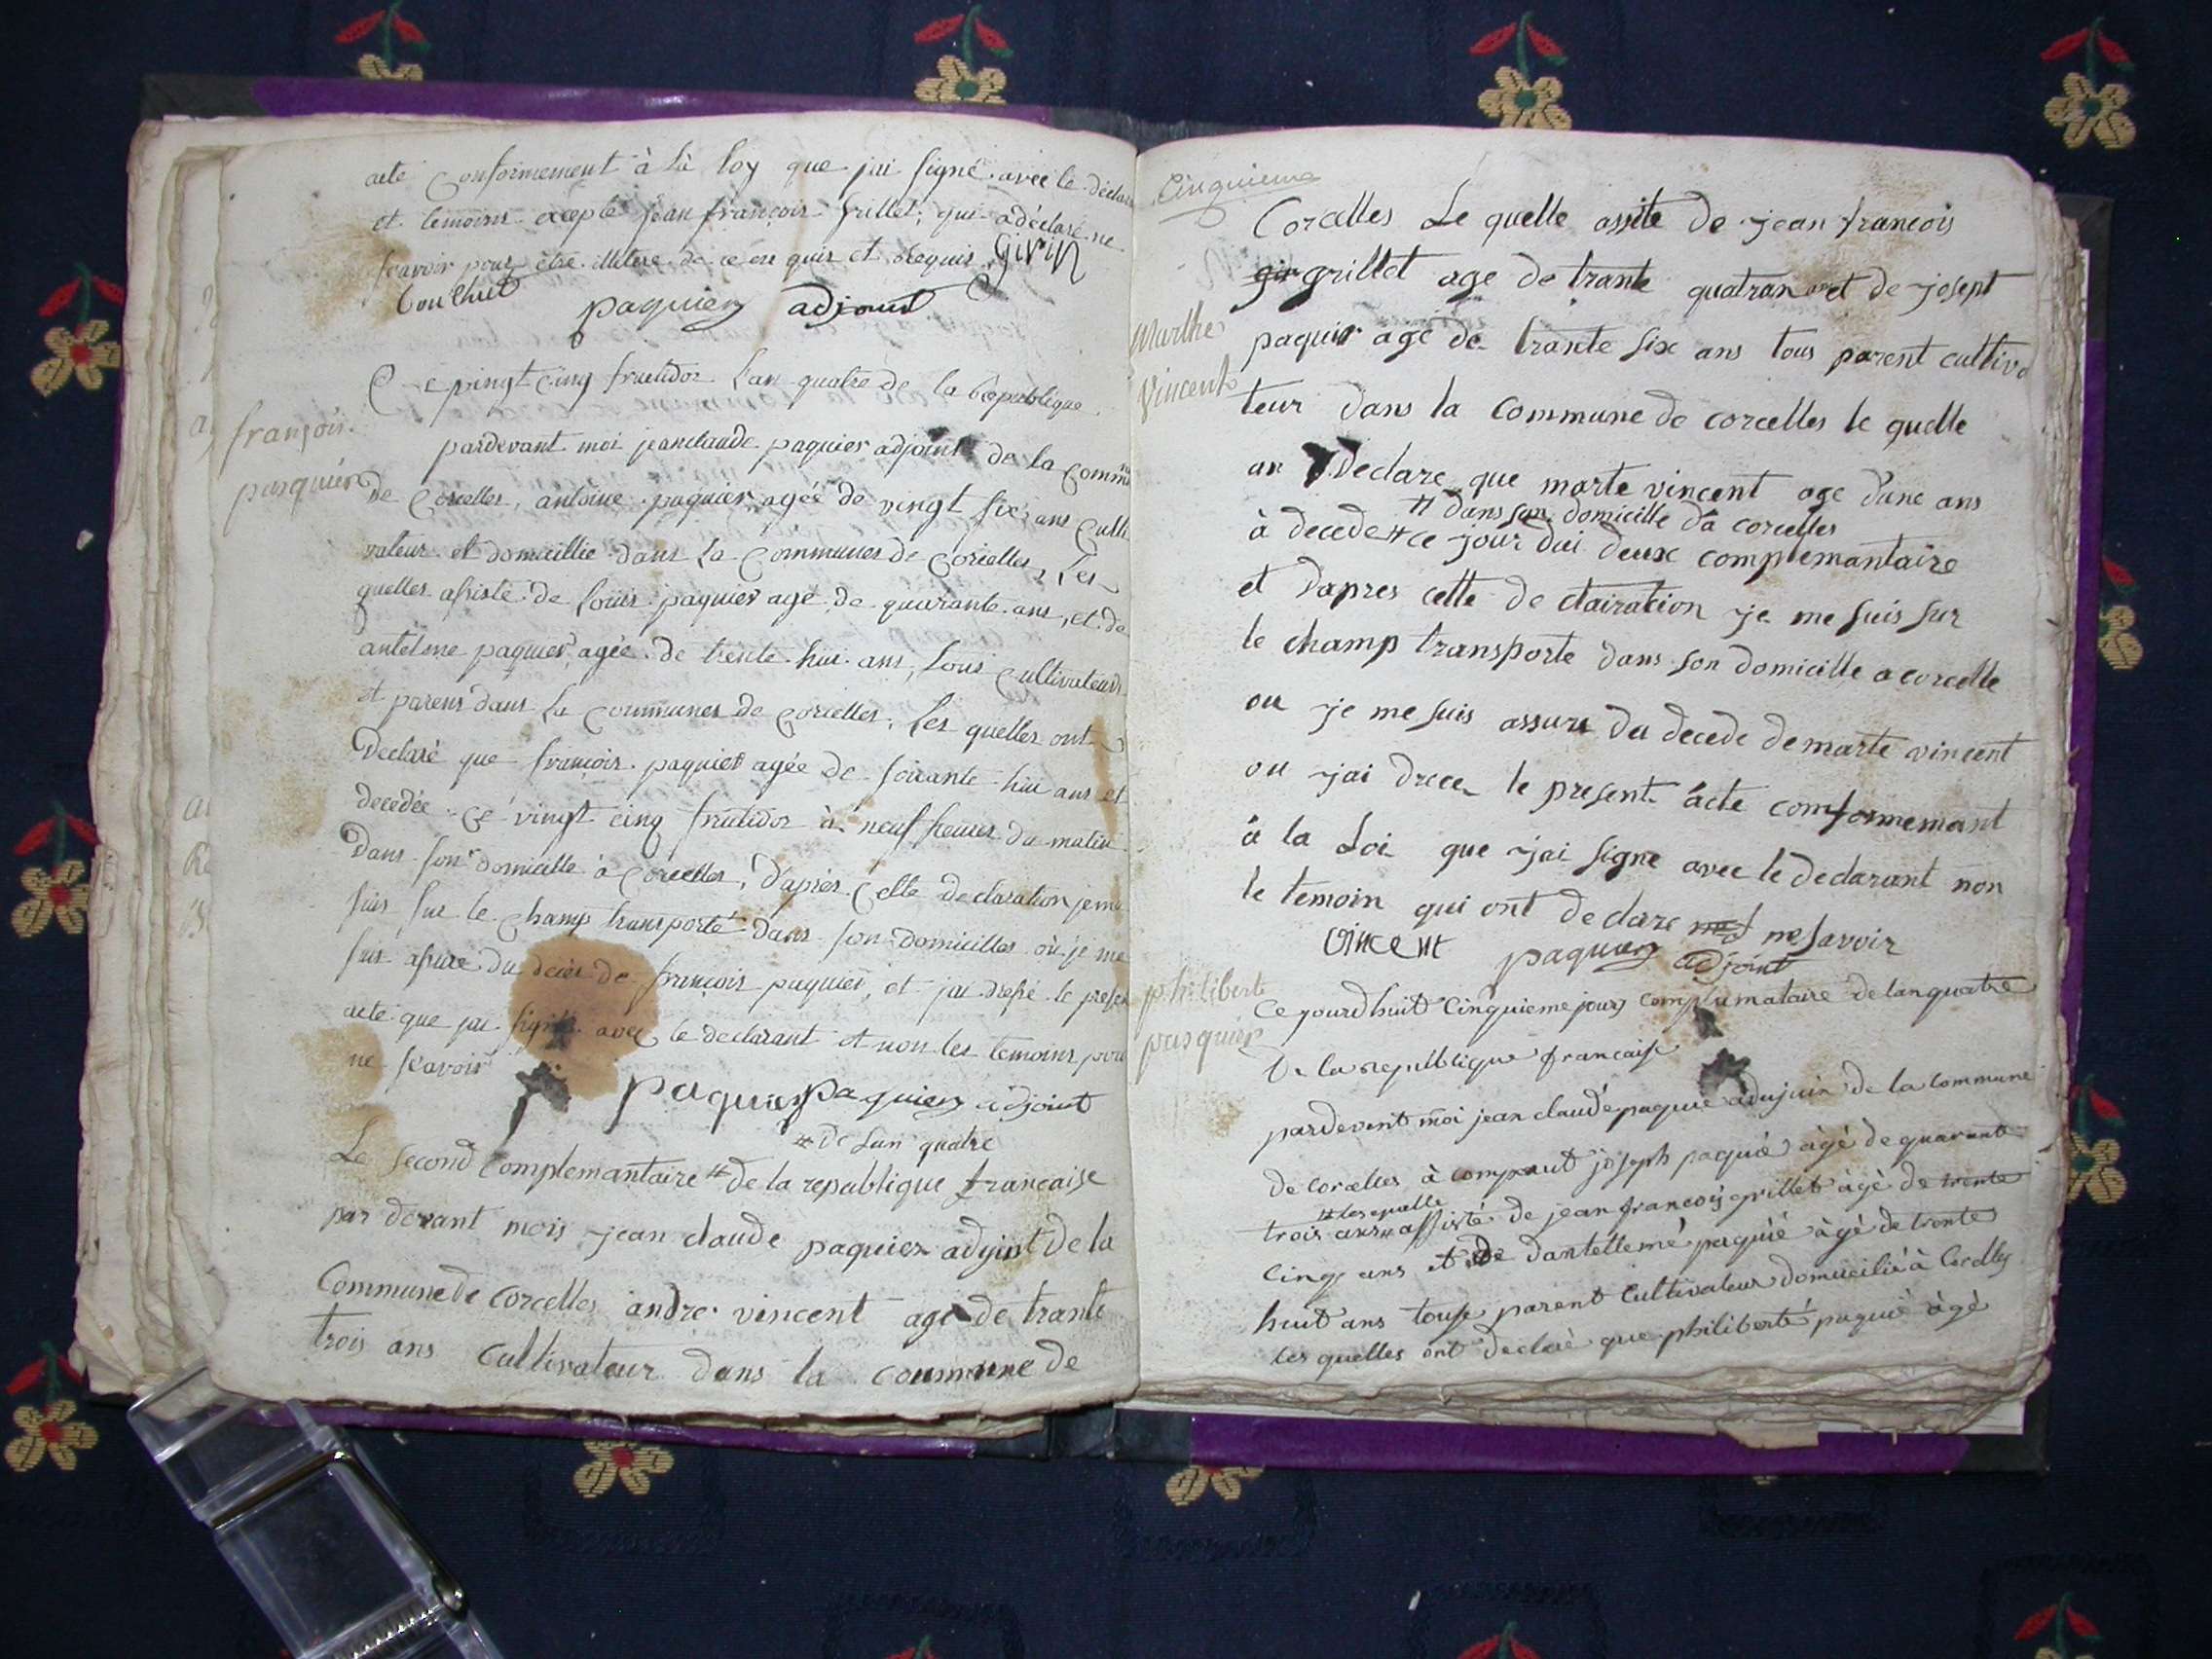 acte conformement à là loy que jai signé avec le déclar
et temoins excepté jean françois grillet, qui a déclaré ne
scavoir pour être illitere de ce en quis et Requis Girin
Bouchut paquier adjoint
Ce vingt cinq fructidor l'an quatre de la République
françois
pardevant moi jean claude paquier adjoint de la commu
pasquier
de Corcelles, antoine paquier agée de vingt six ans culti
vateur et domicillié dans la Communes de Corcelles, Les
quelles assisté de Louis paquier agé de quarante ans, et de
antelme paquier agée de trente hui ans, tous Cultivateurs
et parens dans La Communes de Corcelles, les quelles ont
Declaré que françois paquier agée de soixante hui ans et
decedée ce vingt cinq frutidor à neuf heures du matin
Dans son domicille à Corcelles, d'après celle declaration je me
suis sur le champ transporté dans son domicilles où je me
suis assure du décès de françois paquier, et jai dressé le presen
acte que jai signé avec le declarant et non les temoins pour
ne scavoir
paquier paquier adjoint
# De Lan quatre
Le second Complemantaire # de la republique francaise
par devant mois jean claude paquier adjoint de la
Commune de Corcelles andre vincent age de trante
trois ans Cultivateur dans la commune de
Cinquieme
Corcelles Le quelle assite de jean francois
gir grillet age de trante quatran et de josept
Marthe
paquir age de trante six ans tous parent cultiva
Vincent
teur dans la Commune de corcelles le quelle
an Declare que marte vincent age d'une ans
# dans son domicille da corcelles
à decede # ce jour dui deux complemantaire
et dapres cette de clairation je me suis sur
le champ transporte dans son domicille a corcelle
ou je me suis assure du decede de marte vincent
ou jai drece le present acte comformemant
à la Loi que jai signe avec le declarant non
le temoin qui ont de clare ne savoir
vincent paquier adjoint
philibert
Ce jourdhuit Cinquieme jours complemataire de lan quatre
pasquier
De la republique francaise
pardevent moi jean claudé paquié adujoin de la commune
de Corcelles à comparut joseph paquié àgé de quarante
# les quelle
trois ans # assisté de jean francois grillet àgé de trente
Cinq ans et de dantellemé paquié àgé de trente
huit ans touse parent Cultivateur domicilié à Corcelles
les quelles ont declaré que philiberté paquié àgé